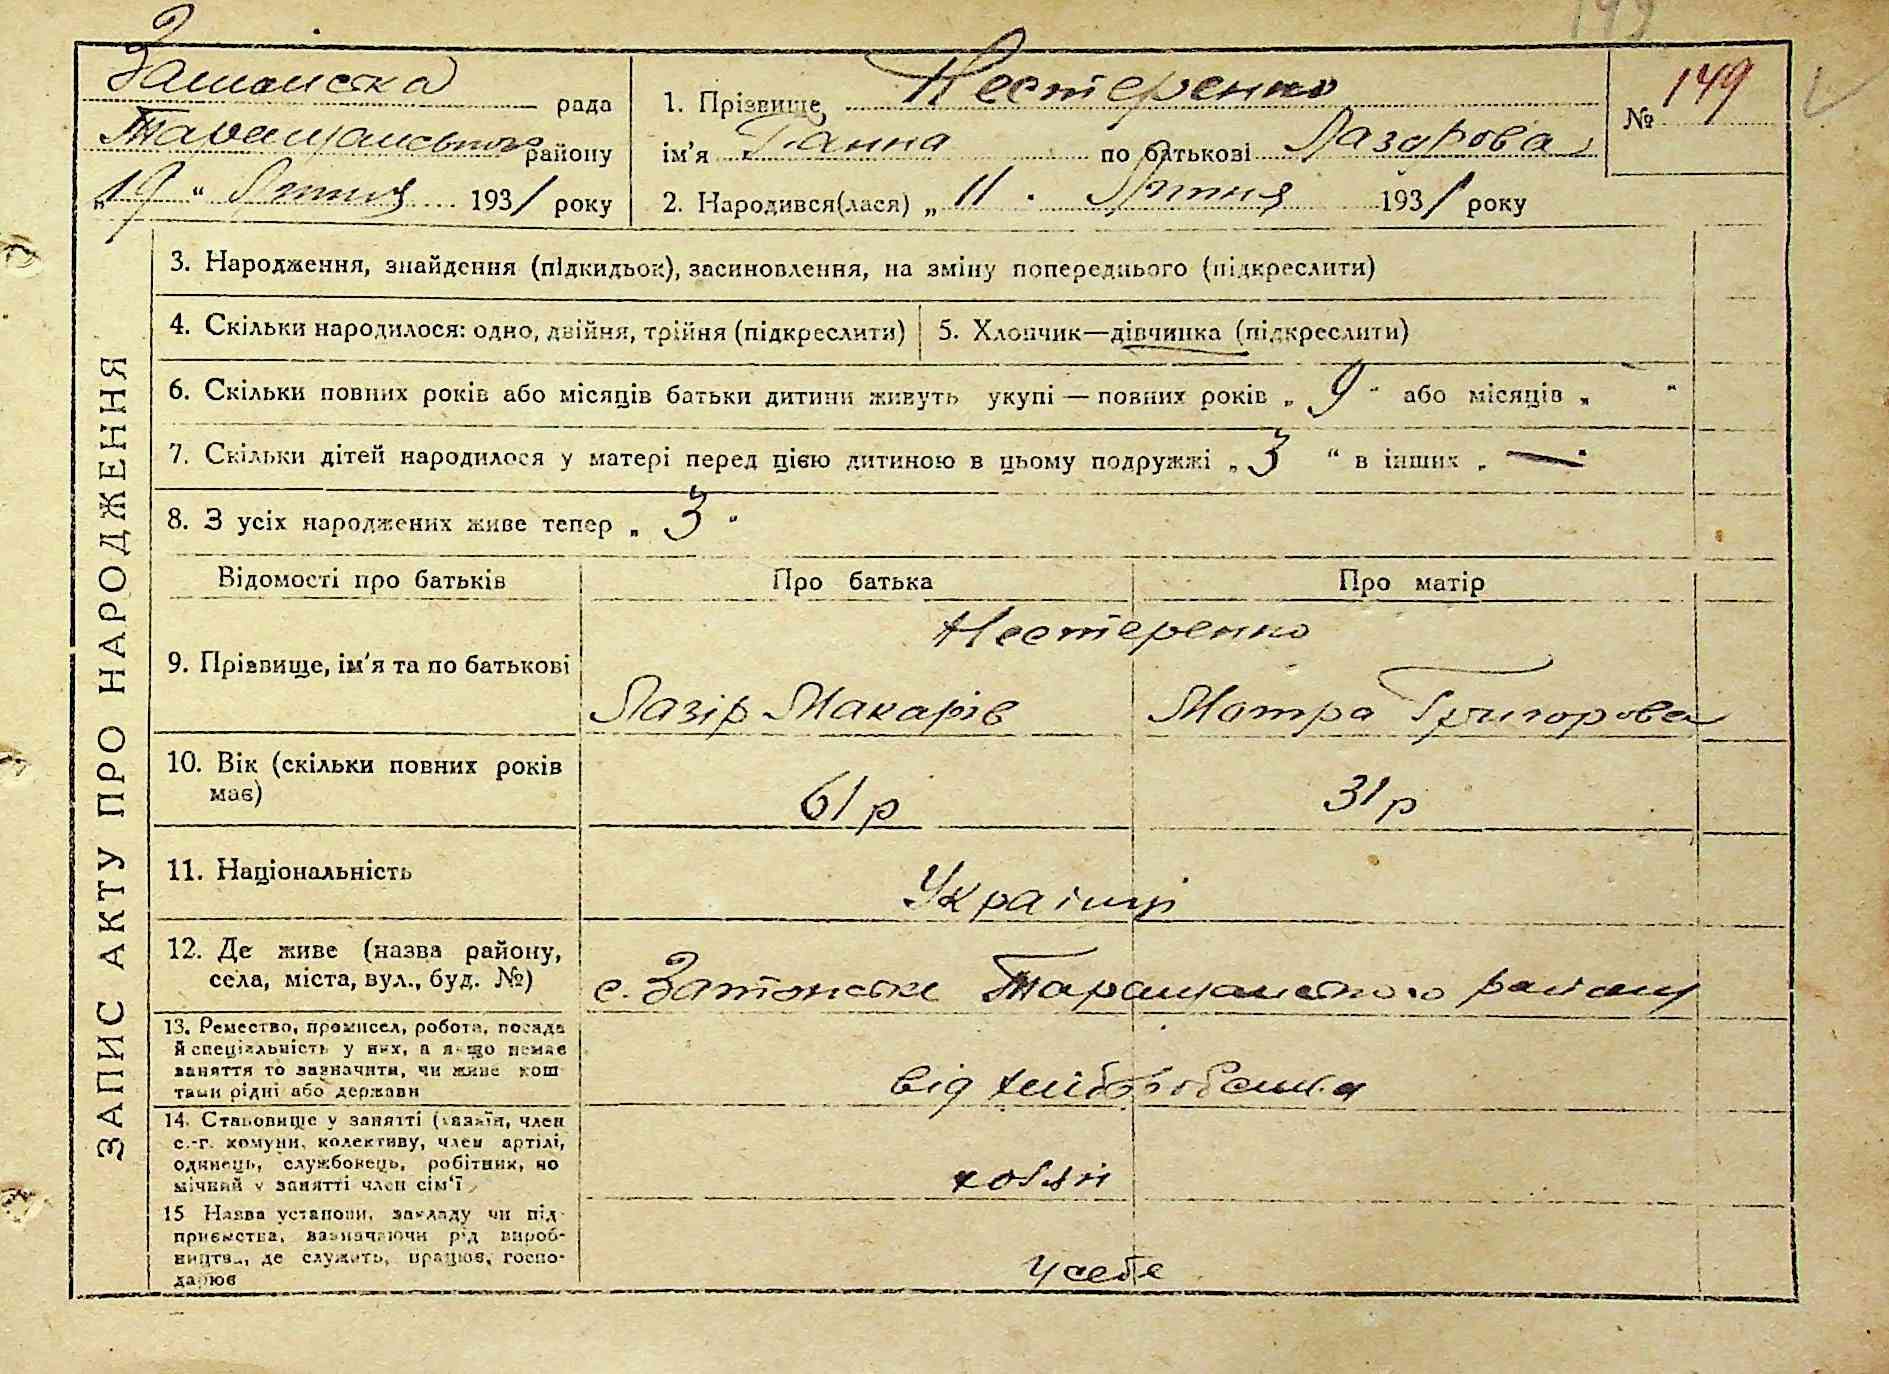 149
Затонська рада
Таращанського району
„19“ Лютня 1931 року
1. Прізвище Нестеренко
ім'я Ганна по батькові Лазорова
2. Народився(лася) „11“ Лютня 1931 року
№ 149
ЗАПИС АКТУ ПРО НАРОДЖЕННЯ
3. Народження, знайдення (підкидьок), засиновлення, на зміну попереднього (підкреслити)
4. Скільки народилося: одно, двійня, трійня (підкреслити)
5. Хлопчик—дівчинка (підкреслити)
6. Скільки повних років або місяців батьки дитини живуть укупі — повних років „ 9 “ або місяців „ “
7. Скільки дітей народилося у матері перед цією дитиною в цьому подружжі „ 3 “ в інших „ — “
8. З усіх народжених живе тепер „ 3 “
Відомості про батьків Про батька Про матір
Нестеренко
9. Прізвище, ім'я та по батькові
Лазір Макарів Мотра Григорова
10. Вік (скільки повних років
має) 61 р 31 р
11. Національність
Українці
12. Де живе (назва району,
села, міста, вул., буд. №) с. Затонське Таращанського району
13. Ремество, промисел, робота, посада
й спеціяльність у них, а якщо немає
заняття то зазначити, чи живе кош
тами рідні або держави
від хліборобства
14. Становище у занятті (хазяїн, член
с.-г. комуни, колективу, член артілі,
одинець, службовець, робітник, по
мічний у занятті член сім'ї)
хозяї
15 Назва установи, закладу чи під-
приємства, зазначаючи рід вироб-
ництва, де служить, працює, госпо-
дарює
у себе